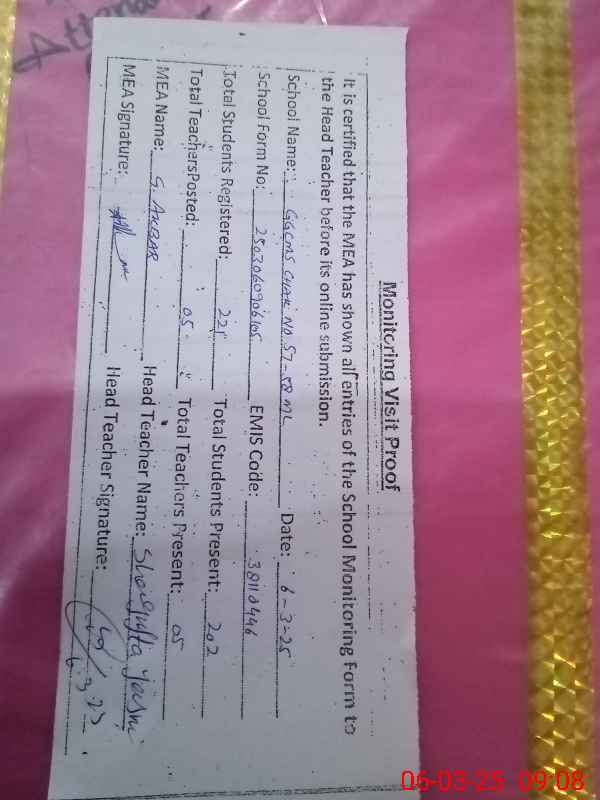 Attenda
Monitoring Visit Proof
It is certified that the MEA has shown all entries of the School Monitoring Form to
the Head Teacher before its online submission.
School Name: GGCMS CHAK NO 57-58 ML Date: 6-3-25
School Form No: 2503060906105 EMIS Code: 38110446
Total Students Registered: 221 Total Students Present: 202
Total Teachers Posted: 05 Total Teachers Present: 05
MEA Name: G. AKBAR Head Teacher Name: Shagufta
MEA Signature: Head Teacher Signature:
06-03-25 09:08